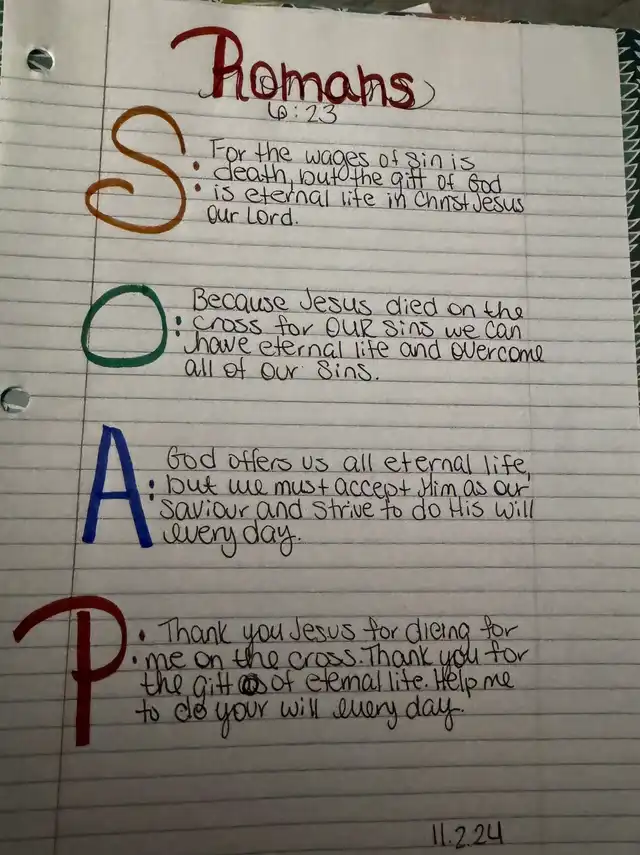 Romans
6:23
S: For the wages of sin is
death, but the gift of God
is eternal life in Christ Jesus
our Lord.
O: Because Jesus died on the
cross for OUR sins we can
have eternal life and overcome
all of our sins.
A: God offers us all eternal life,
but we must accept Him as our
saviour and strive to do His will
every day.
P: Thank you Jesus for dieing for
me on the cross. Thank you for
the gift of eternal life. Help me
to do your will every day.
11.2.24